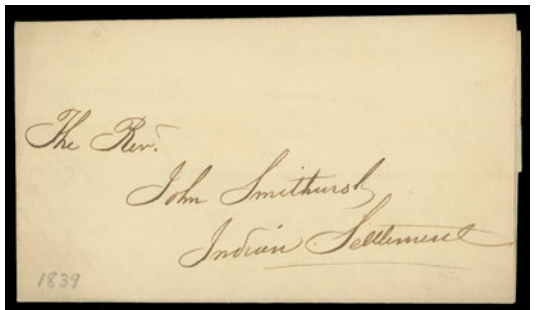 The Rev.
John Smithurst
Indian Settlement
1839